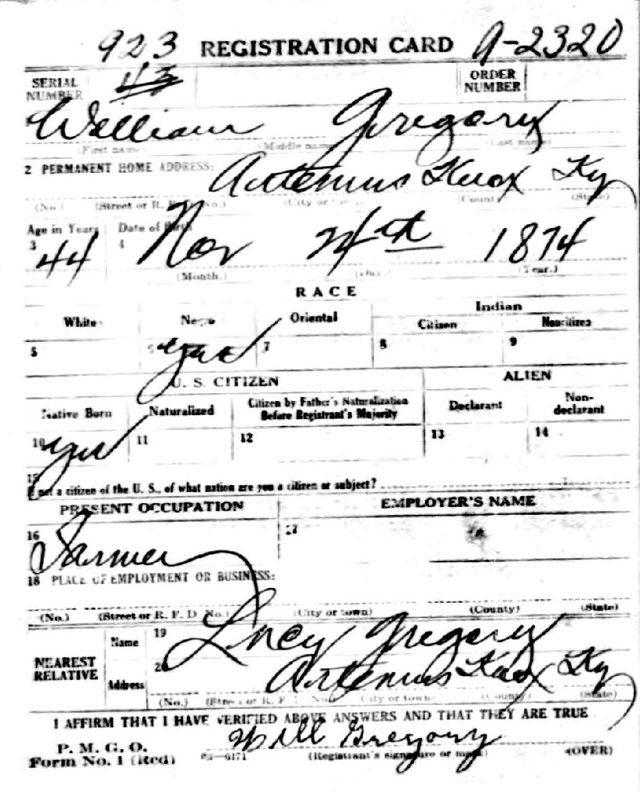 923 REGISTRATION CARD A-2320
SERIAL NUMBER 43 ORDER NUMBER
William Gregory
(First name) (Middle name) (Last name)
2 PERMANENT HOME ADDRESS:
Artemus Knox Ky
(No.) (Street or R. F. D. No.) (City or town) (County) (State)
Age in Years Date of Birth
3 44 4 Nov 24th 1874
(Month.) (Day.) (Year.)
RACE
White Negro Oriental Indian
Citizen Noncitizen
5 6 yes 7 8 9
U. S. CITIZEN ALIEN
Native Born Naturalized Citizen by Father's Naturalization Before Registrant's Majority Declarant Non-declarant
10 yes 11 12 13 14
15
If not a citizen of the U. S., of what nation are you a citizen or subject?
PRESENT OCCUPATION EMPLOYER'S NAME
16 Farmer 17
18 PLACE OF EMPLOYMENT OR BUSINESS:
(No.) (Street or R. F. D. No.) (City or town) (County) (State)
NEAREST RELATIVE Name 19 Lucy Gregory
Address 20 Artemus Knox Ky
(No.) (Street or R. F. D. No.) (City or town) (County) (State)
I AFFIRM THAT I HAVE VERIFIED ABOVE ANSWERS AND THAT THEY ARE TRUE
P. M. G. O.
Form No. 1 (Red) 03-6171 Will Gregory (OVER)
(Registrant's signature or mark)